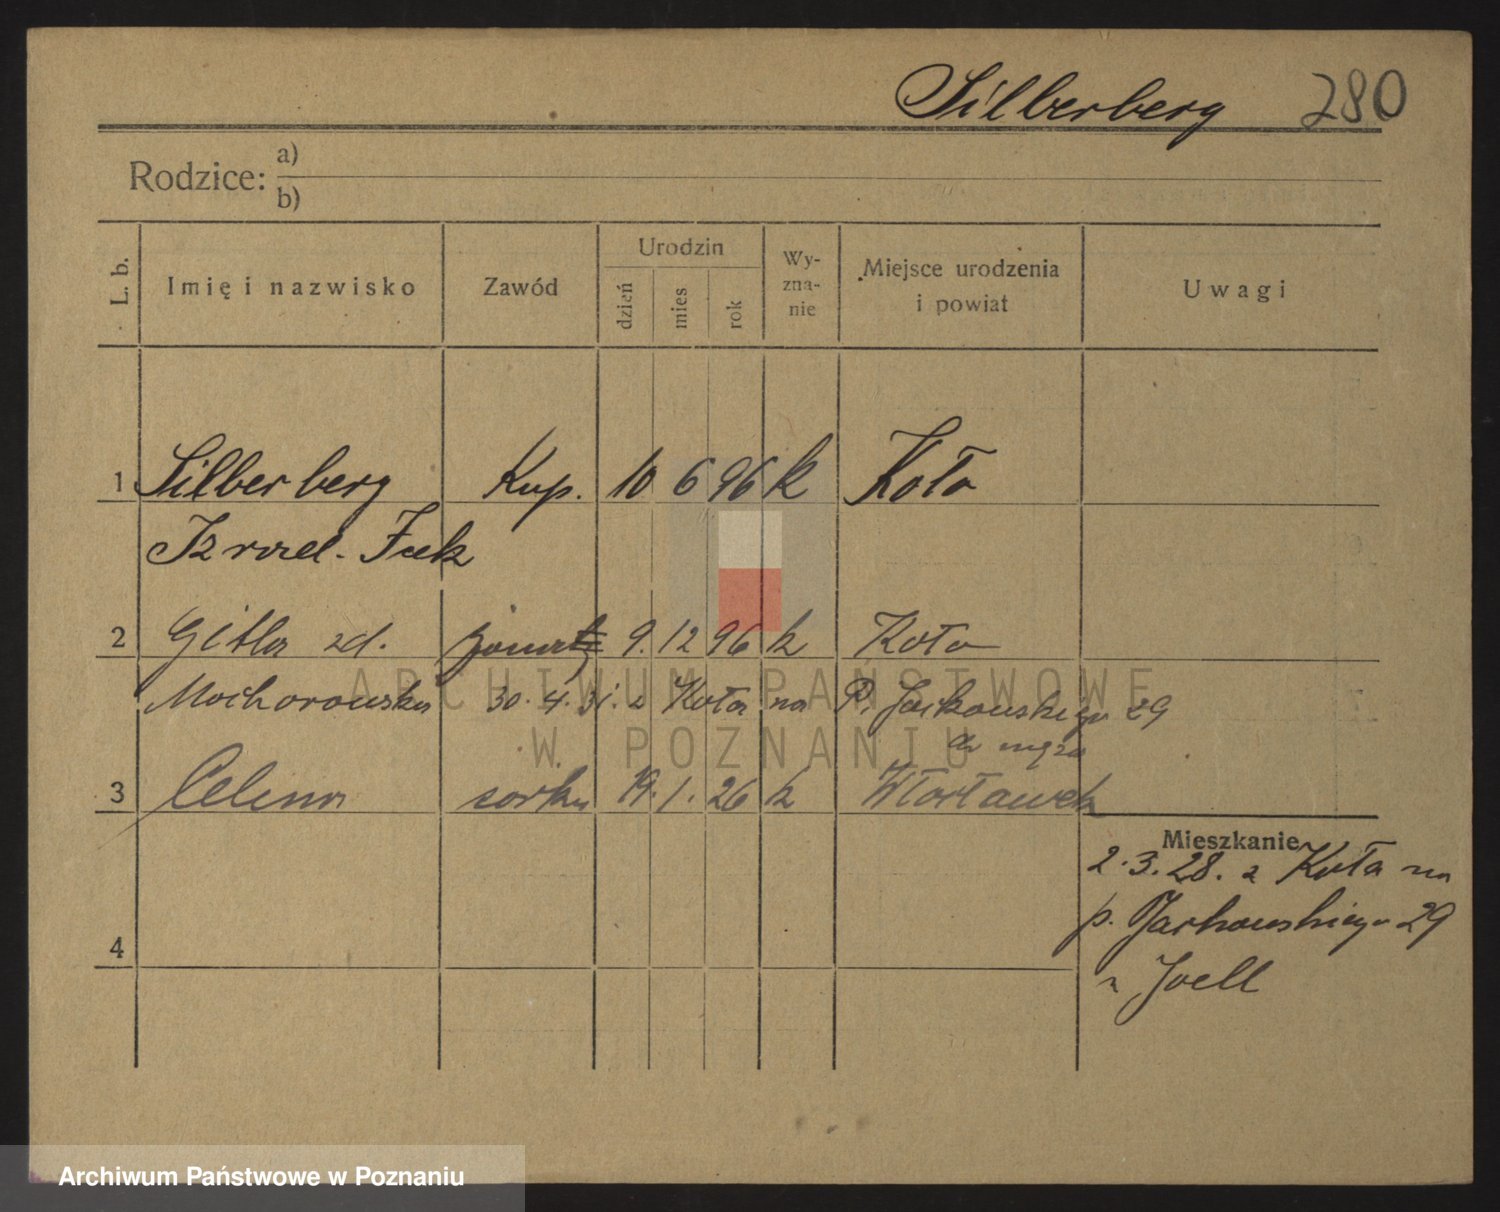 Silberberg 280
Rodzice: a)
b)
L. b. Imię i nazwisko Zawód Urodzin dzień mies rok Wy-zna-nie Miejsce urodzenia i powiat Uwagi
1 Silberberg Kup. 10 6 96 k Koło
Izrael.
2 Gitla zd. 9. 12 96 k Koło
30. 4. 31. z Koła na P. Jackowskiego 29
do męża
ARCHIWUM PAŃSTWOWE
W POZNANIU
3 Celina córka 19. 1. 26 k
Mieszkanie
2.3.28. z Koła na
p. Jackowskiego 29
Joell
4
Archiwum Państwowe w Poznaniu